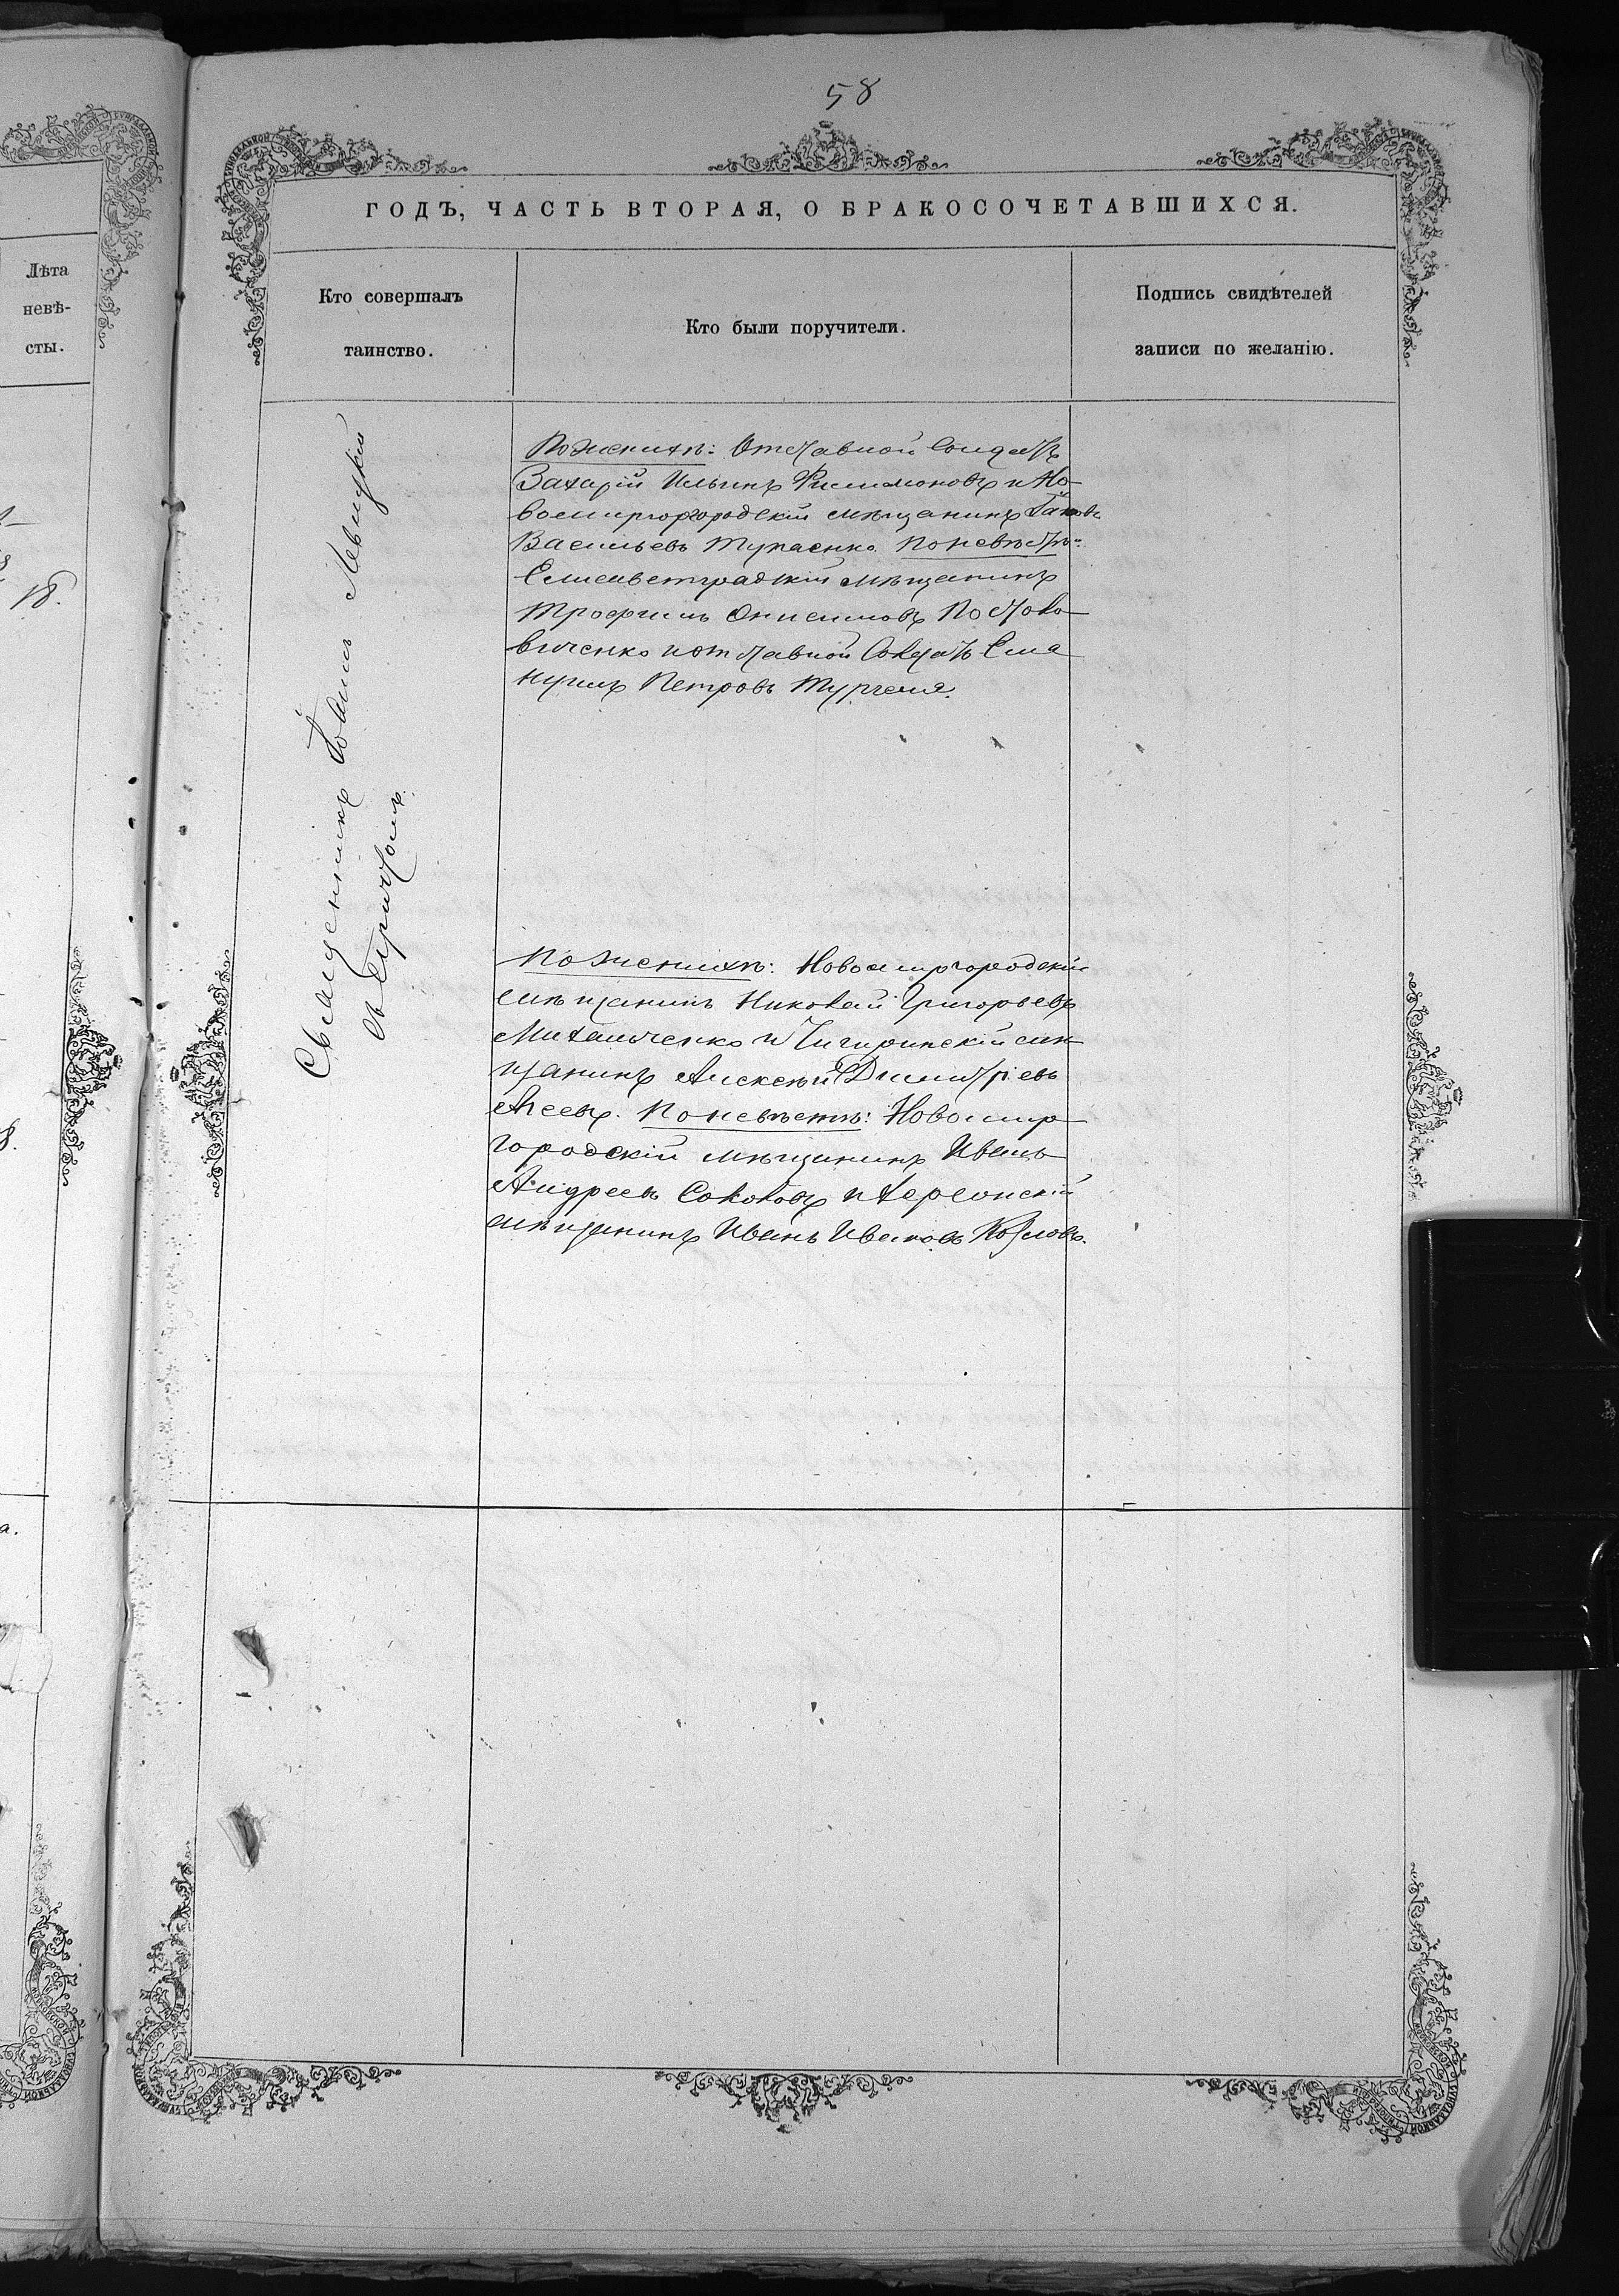 58
ГОДЪ, ЧАСТЬ ВТОРАЯ, О БРАКОСОЧЕТАВШИХСЯ.
Лѣта
невѣ-
сты.
18.
8.
а.
Кто совершалъ
таинство.
Кто были поручители.
Подпись свидѣтелей
записи по желанію.
Священникъ Іоаннъ Левицкій
съ причтомъ.
По женихѣ: Отставной Солдатъ
Захарій Ильинъ Филимоновъ и Но-
вомиргородскій мѣщанинъ Іаковъ
Васильевъ Тупаенко. По невѣстѣ:
Елисаветградскій мѣщанинъ
Трофимъ Онисимовъ
и отставной Солдатъ Ема
нуилъ Петровъ
По женихѣ: Новомиргородскій
мѣщанинъ Николай Григорьевъ
Михальченко и Чигиринскій мѣ
щанинъ Алексѣй Димитріевъ
Агеевъ. По невѣстѣ: Новомир-
городскій мѣщанинъ Иванъ
Андреевъ Соколовъ и Херсонскій
мѣщанинъ Иванъ Ивановъ Козловъ.